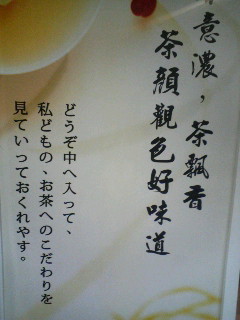 意濃，茶飄香
茶顔觀色好味道
どうぞ中へ入って、
私どもの、お茶へのこだわりを
見ていっておくれやす。